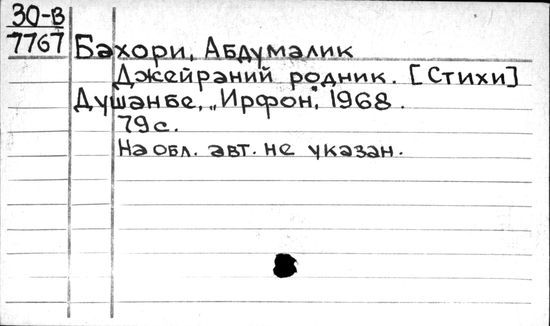 30-В
7767
Бахори, Абдумалик
Джейраний родник. [Стихи]
Душанбе, „Ирфон", 1968.
79 с.
На обл. авт. не указан.